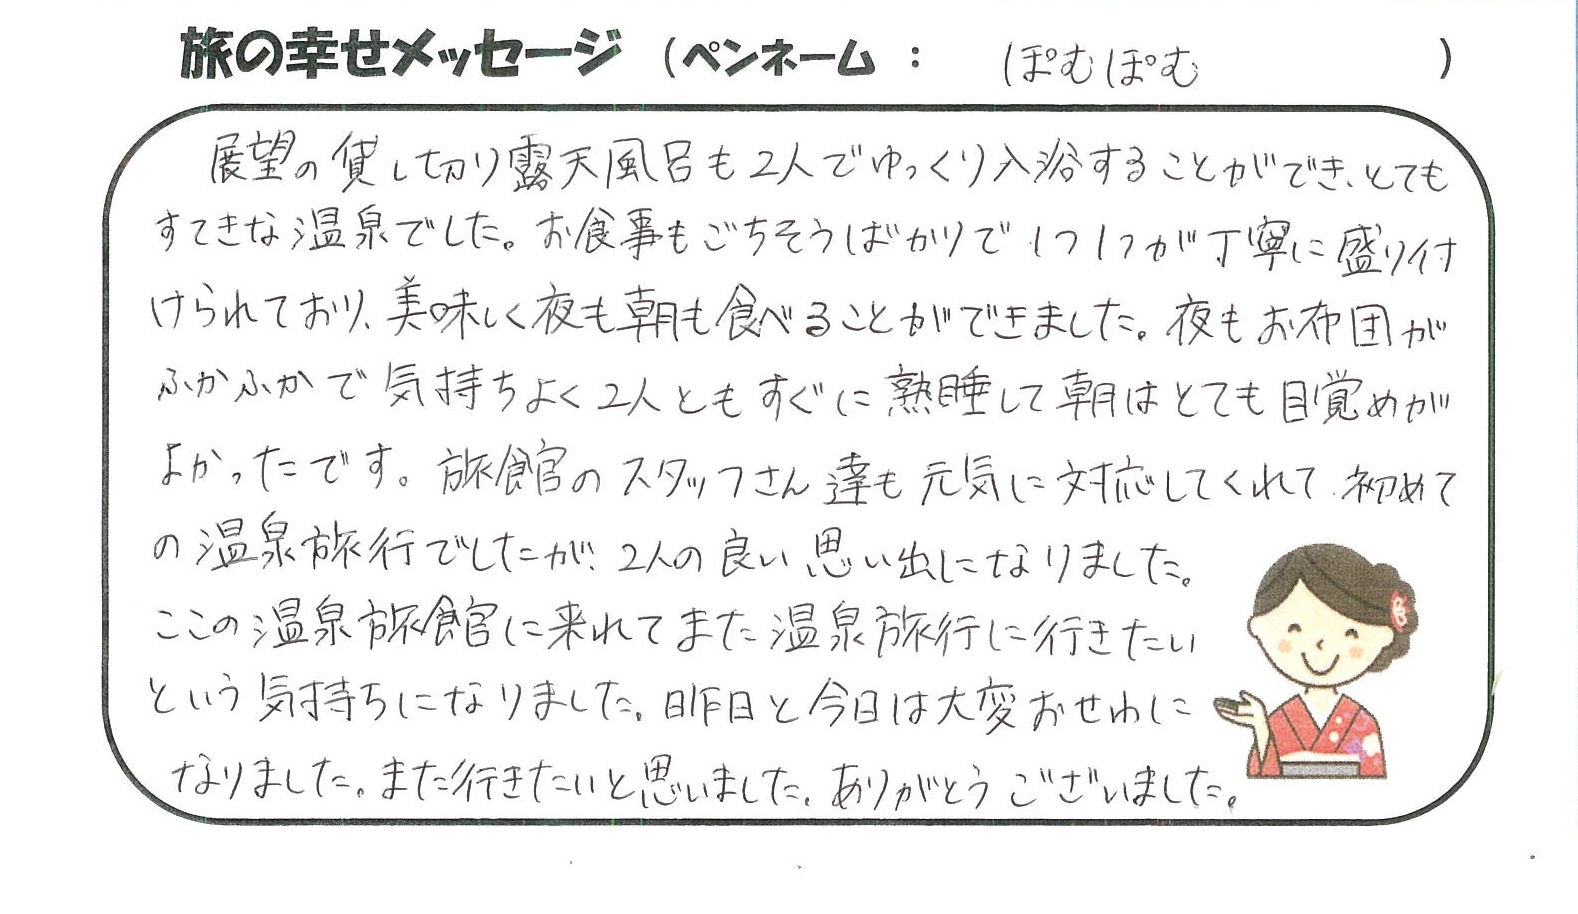 旅の幸せメッセージ (ペンネーム : ぽむぽむ )
展望の貸し切り露天風呂も2人でゆっくり入浴することができ、とても
すてきな温泉でした。お食事もごちそうばかりで1つ1つが丁寧に盛り付
けられており、美味しく夜も朝も食べることができました。夜もお布団が
ふかふかで気持ちよく2人ともすぐに熟睡して朝はとても目覚めが
よかったです。旅館のスタッフさん達も元気に対応してくれて、初めて
の温泉旅行でしたが、2人の良い思い出になりました。
ここの温泉旅館に来れてまた温泉旅行に行きたい
という気持ちになりました。昨日と今日は大変おせわに
なりました。また行きたいと思いました。ありがとうございました。